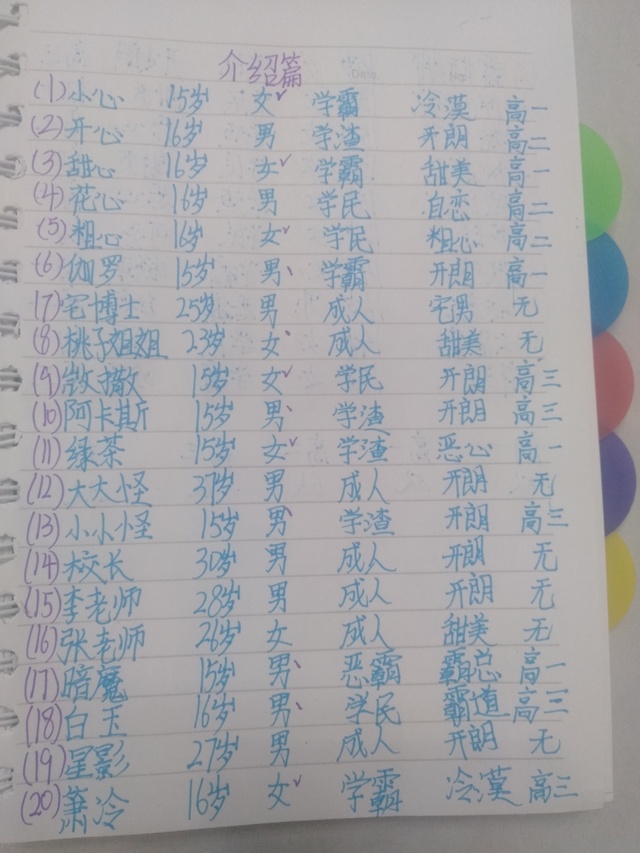 介绍篇
(1)小心 15岁 女✓ 学霸 冷漠 高一
(2)开心 16岁 男 学渣 开朗 高二
(3)甜心 16岁 女✓ 学霸 甜美 高一
(4)花心 16岁 男 学民 自恋 高二
(5)粗心 16岁 女✓ 学民 粗心 高二
(6)伽罗 15岁 男、 学霸 开朗 高一
(7)宅博士 25岁 男 成人 宅男 无
(8)桃子姐姐 23岁 女、 成人 甜美 无
(9)撒 15岁 女✓ 学民 开朗 高三
(10)阿卡斯 15岁 男、 学渣 开朗 高三
(11)绿茶 15岁 女✓ 学渣 恶心 高一
(12)大大怪 37岁 男 成人 开朗 无
(13)小小怪 15岁 男、 学渣 开朗 高三
(14)校长 30岁 男 成人 开朗 无
(15)李老师 28岁 男 成人 开朗 无
(16)张老师 26岁 女 成人 甜美 无
(17)暗魔 15岁 男、 恶霸 霸总 高一
(18)白玉 16岁 男、 学民 霸道 高三
(19)星影 27岁 男 成人 开朗 无
(20)萧冷 16岁 女✓ 学霸 冷漠 高三